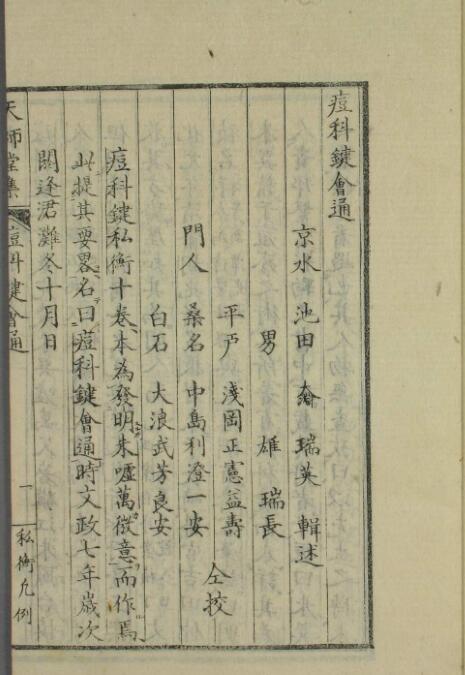 痘科鍵會通
京水 池田 奫 瑞英 輯述
男 雄 瑞長
平戸 淺岡正憲益壽
門人 桑名 中島利澄一安 仝挍
白石 大浪武芳良安
痘科鍵私衡十卷本為發明朱嘘萬微意而作焉
此提其要畧名曰痘科鍵會通時文政七年歲次
閼逢涒灘冬十月日
天師堂集 痘科鍵會通 一 私衡凡例